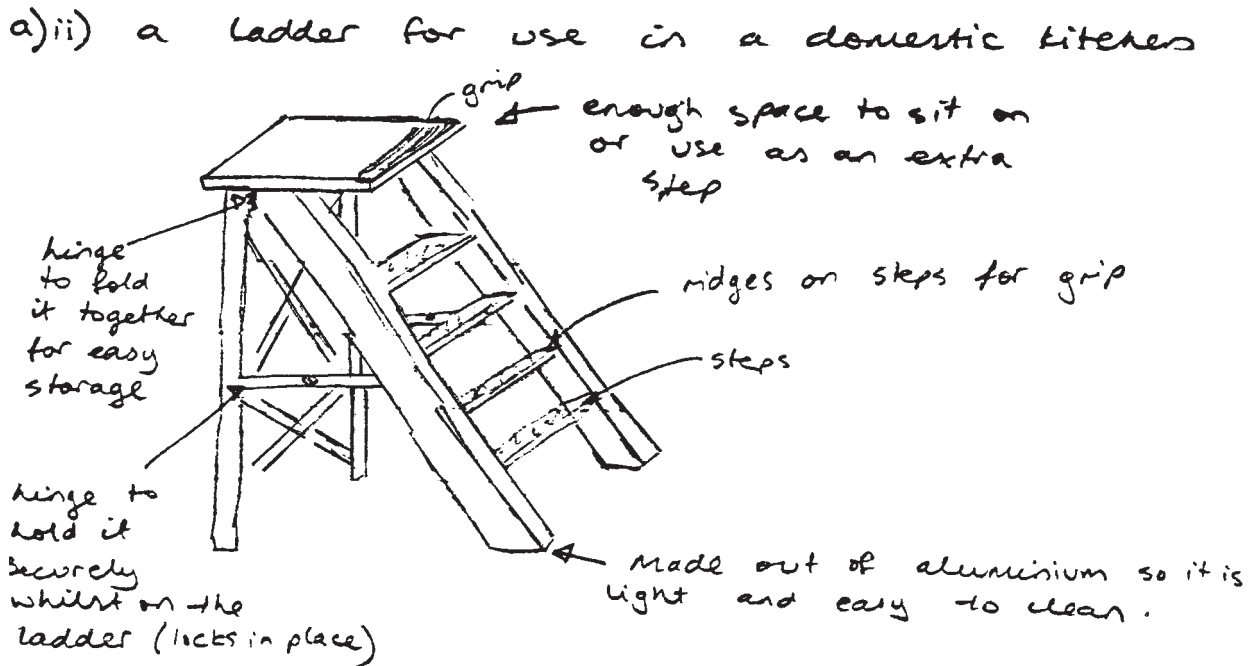 a)ii) a ladder for use in a domestic kitchen
grip
enough space to sit on
or use as an extra
step
hinge
to fold
it together
for easy
storage
ridges on steps for grip
steps
hinge to
hold it
securely
whilst on the
ladder (locks in place)
Made out of aluminium so it is
light and easy to clean.